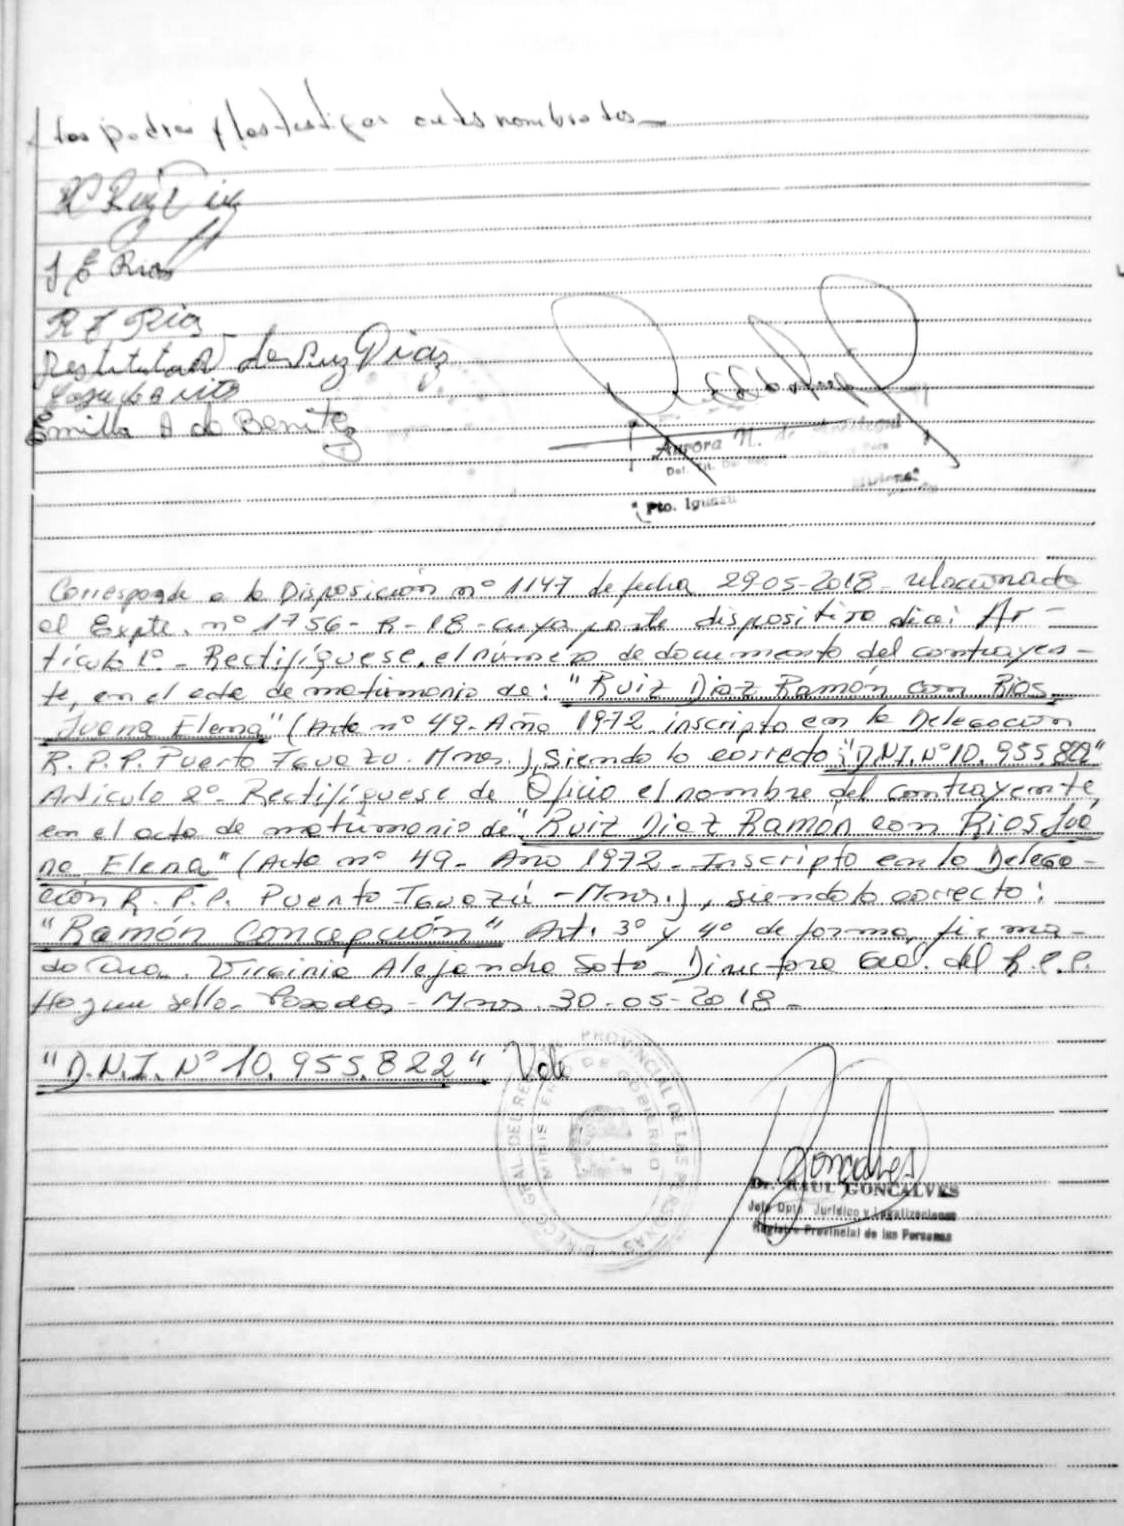 los padres y los testigos antes nombrados
RC Ruiz Diaz
J E Rios
R F Rios
Restituta R de Ruiz Diaz
Emilia A de Benitez
Aurora N. de
Pto. Iguazú
Misiones
Corresponde a la Disposición nº 1147 de fecha 29-05-2018- relacionado
al Expte. nº 1756-R-18-cuya parte dispositiva dice: Ar-
tículo 1º- Rectifíquese, el número de documento del contrayen-
te, en el acta de matrimonio de: "Ruiz Diaz Ramón con Rios
Juana Elena" (Acta nº 49-Año 1972 inscripto en la Delegación
R.P.P. Puerto Iguazu. Mnes.), siendo lo correcto: "D.N.I. Nº 10.955.822"
Artículo 2º- Rectifíquese de Oficio el nombre del contrayente,
en el acta de matrimonio de "Ruiz Diaz Ramón con Rios Jua
na Elena" (Acta nº 49- Año 1972- Inscripto en la Delega-
ción R.P.P. Puerto Iguazú-Mnes.), siendo lo correcto:
"Ramón Concepción" Art. 3º y 4º de forma, firma-
do Dra. Virginia Alejandra Soto- Directora Gral. del R.P.P.
Hay un sello- Posadas-Mnes. 30-05-2018-
"D.N.I. Nº 10.955.822" Vale
DIRECC. GRAL. DEL REG. PROVINCIAL DE LAS PERSONAS
MINISTERIO DE GOBIERNO
Goncalves
Dr. RAUL GONCALVES
Jefe Dpto. Jurídico y Legalizaciones
Registro Provincial de las Personas